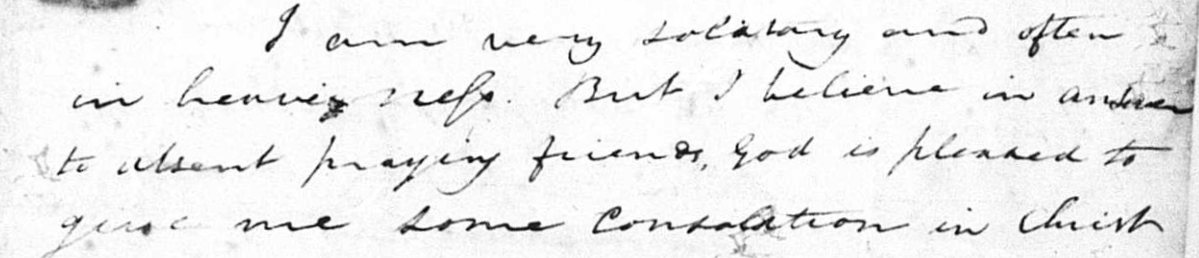 I am very solitary and often
in heaviness. But I believe in answer
to absent praying friends, God is pleased to
give me some consolation in Christ